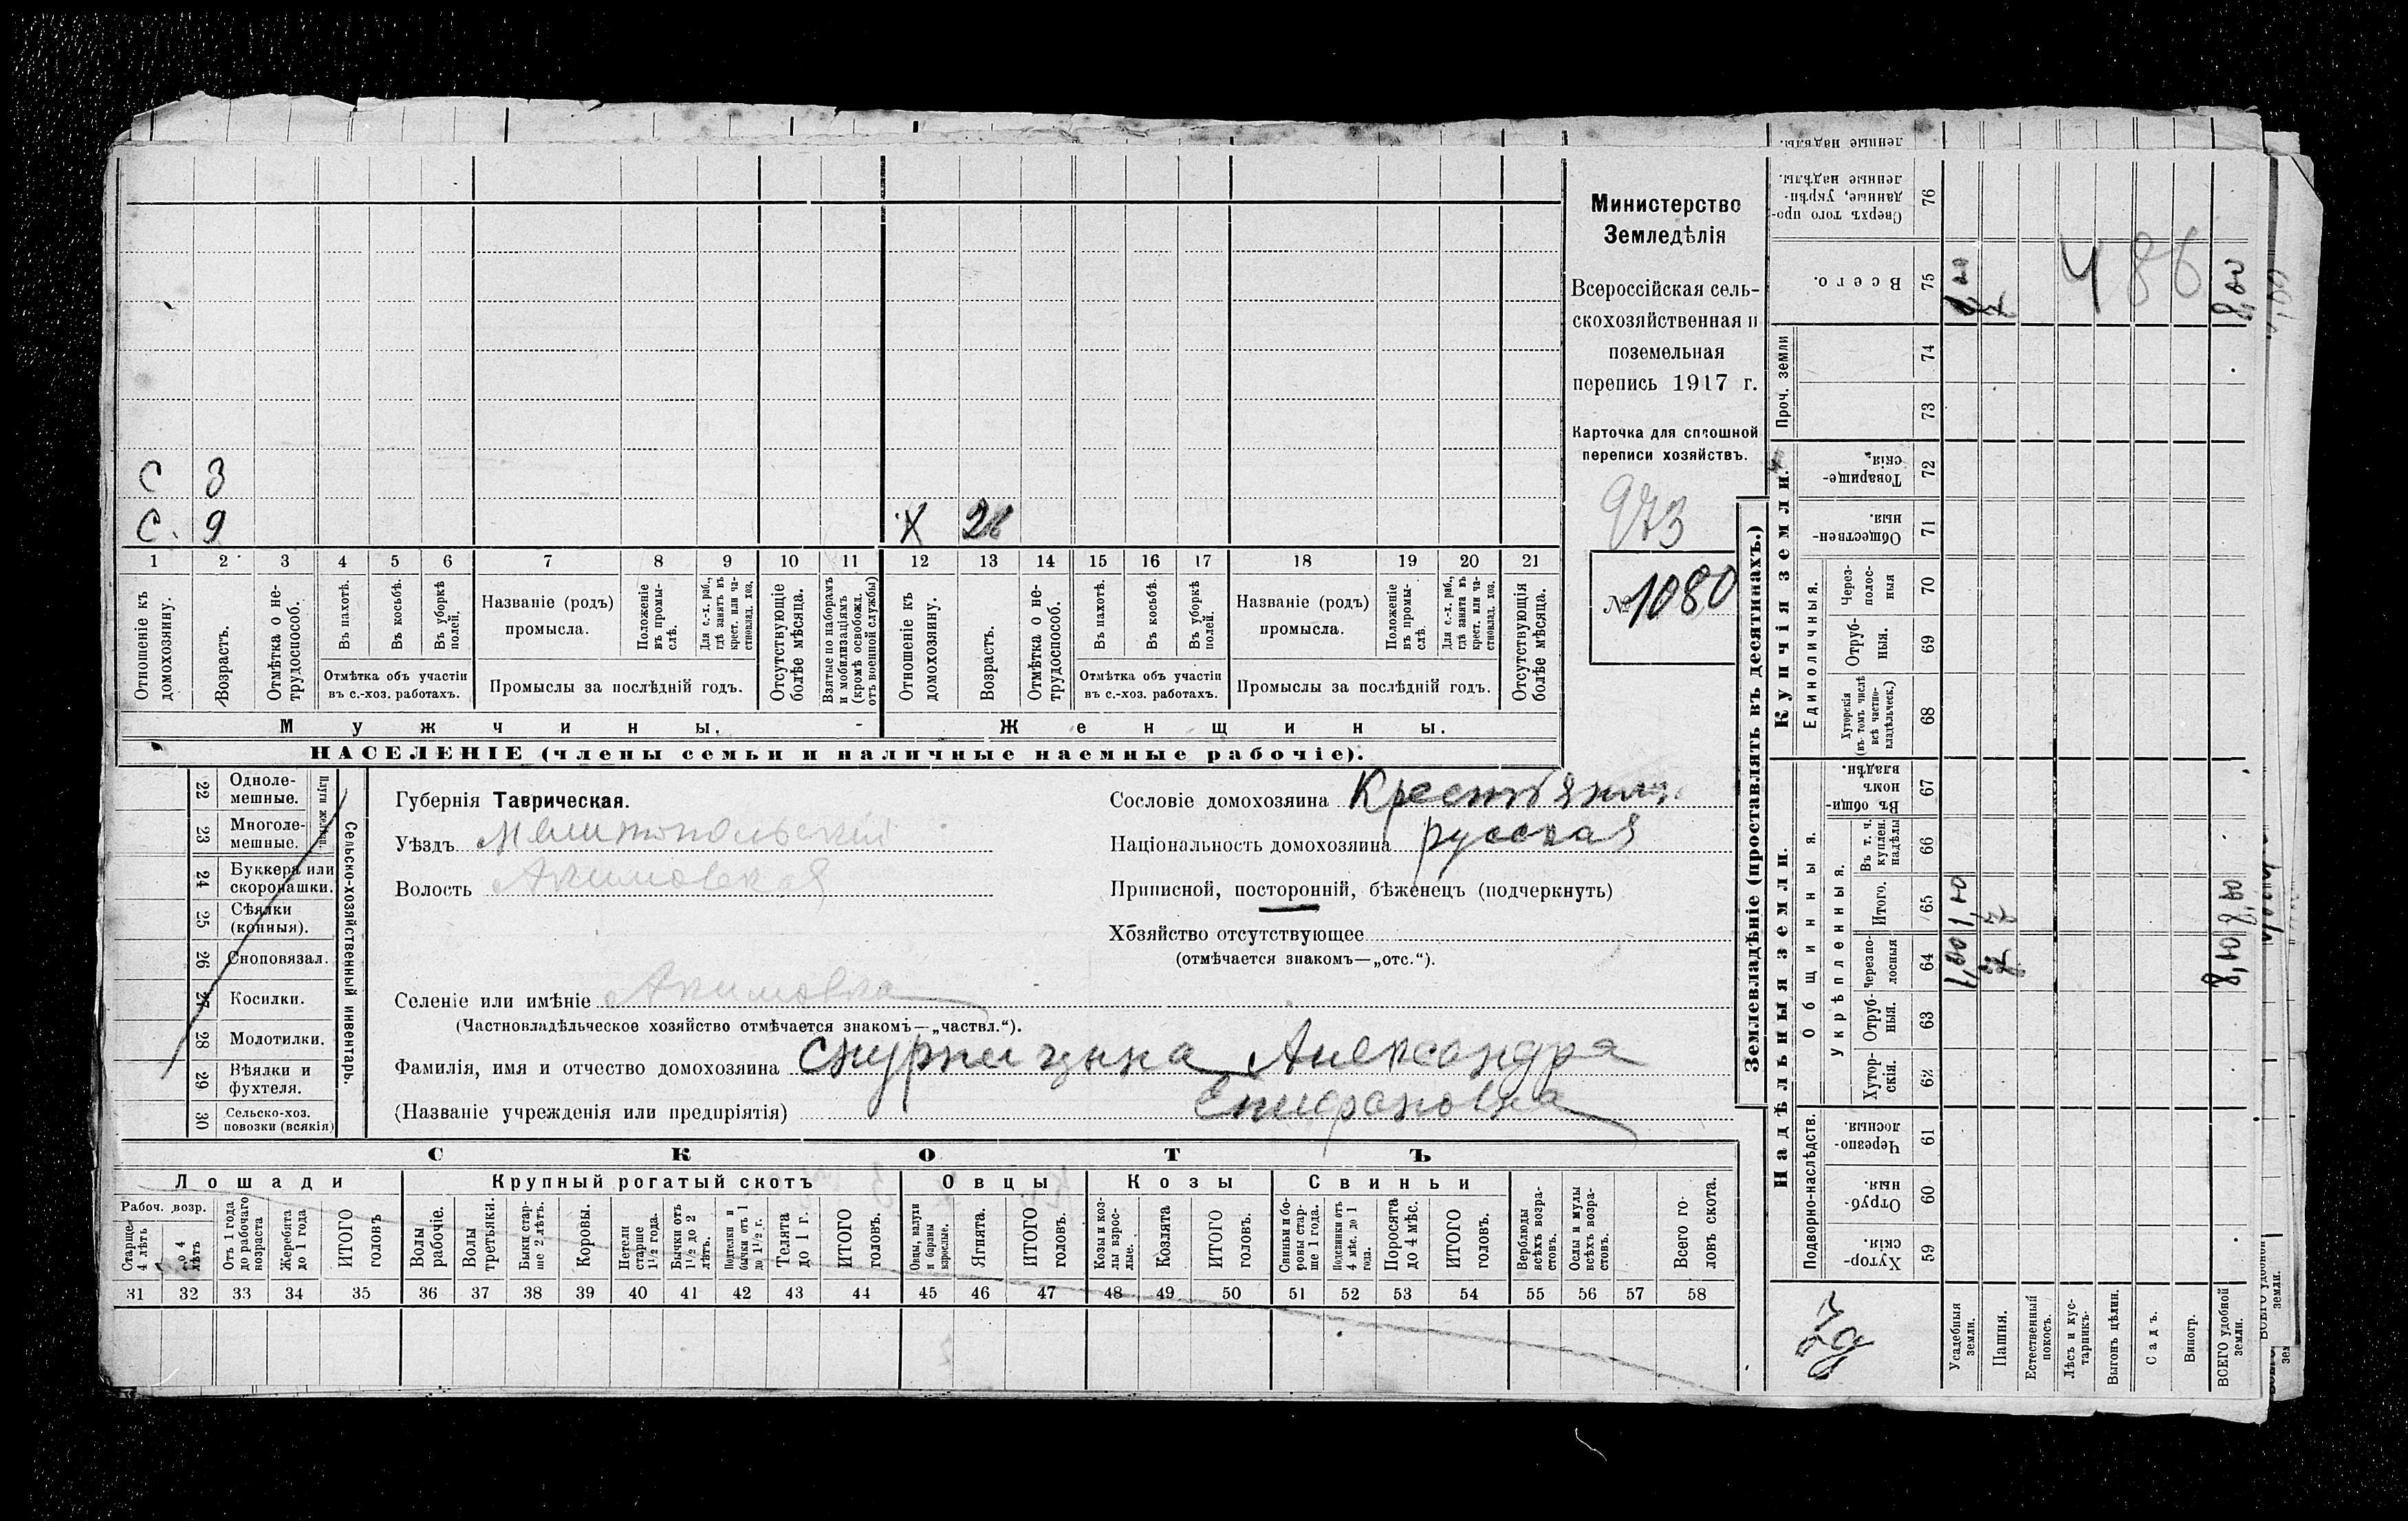 С 3
С. 9
Х 26
1 2 3 4 5 6 7 8 9 10 11 12 13 14 15 16 17 18 19 20 21
Отношеніе къ домохозяину.
Возрастъ.
Отмѣтка о нетрудоспособ.
Въ пахотѣ.
Въ косьбѣ.
Въ уборкѣ полей.
Отмѣтка объ участіи
въ с.-хоз. работахъ.
Названіе (родъ)
промысла.
Положеніе въ промыслѣ.
Для с.-х. раб., гдѣ занятъ въ крест. или частновлад. хоз.
Промыслы за послѣдній годъ.
Отсутствующіе болѣе мѣсяца.
Взятые по наборамъ и мобилизаціямъ (кромѣ освобожд. отъ военной службы)
Отношеніе къ домохозяину.
Возрастъ.
Отмѣтка о нетрудоспособ.
Въ пахотѣ.
Въ косьбѣ.
Въ уборкѣ полей.
Отмѣтка объ участіи
въ с.-хоз. работахъ.
Названіе (родъ)
промысла.
Положеніе въ промыслѣ.
Для с.-х. раб., гдѣ занята въ крест. или частновлад. хоз.
Промыслы за послѣдній годъ.
Отсутствующія болѣе мѣсяца.
Мужчины. Женщины.
НАСЕЛЕНІЕ (члены семьи и наличные наемные рабочіе).
Министерство
Земледѣлія
Всероссійская сель-
скохозяйственная и
поземельная
перепись 1917 г.
Карточка для сплошной
переписи хозяйствъ.
973
№ 1080
22 Однолемешные.
23 Многолемешные.
24 Буккера или скоропашки.
25 Сѣялки (конныя).
26 Сноповязал.
27 Косилки.
28 Молотилки.
29 Вѣялки и фухтеля.
30 Сельско-хоз. повозки (всякія)
Сельско-хозяйственный инвентарь.
Губернія Таврическая.
Уѣздъ Мелитопольскій
Волость Акимовская
Сословіе домохозяина Крестьянка
Національность домохозяина русская
Приписной, посторонній, бѣженецъ (подчеркнуть)
Хозяйство отсутствующее
(отмѣчается знакомъ—„отс.“).
Селеніе или имѣніе Акимовка
(Частновладѣльческое хозяйство отмѣчается знакомъ—„частвл.“).
Фамилія, имя и отчество домохозяина Александра
(Названіе учрежденія или предпріятія) Епифановна
СКОТЪ
Лошади Крупный рогатый скотъ Овцы Козы Свиньи
Рабоч. возр.
Старше 4 лѣтъ
До 4 лѣтъ
Отъ 1 года до рабочаго возраста
Жеребята до 1 года
ИТОГО головъ
Волы рабочіе.
Волы третьяки.
Быки старше 2 лѣтъ.
Коровы.
Нетели старше 1½ года.
Бычки отъ 1½ до 2 лѣтъ.
Подтелки и бычки отъ 1 до 1½ г.
Телята до 1 г.
ИТОГО головъ.
Овцы, валухи и бараны взрослые.
Ягнята.
ИТОГО головъ.
Козы и козлы взрослые.
Козлята
ИТОГО головъ.
Свиньи и боровы старше 1 года.
Подсвинки отъ 4 мѣс. до 1 года.
Поросята до 4 мѣс.
ИТОГО головъ.
Верблюды всѣхъ возрастовъ.
Ослы и мулы всѣхъ возрастовъ.
Всего головъ скота.
31 32 33 34 35 36 37 38 39 40 41 42 43 44 45 46 47 48 49 50 51 52 53 54 55 56 57 58
Землевладѣніе (проставлять въ десятинахъ.)
Надѣльныя земли. Купчія земли.
Подворно-наслѣдств.
Общинныя.
Укрѣпленныя.
Единоличныя.
Проч. земли
59 Хуторскія.
60 Отрубныя.
61 Черезполосныя.
62 Хуторскія.
63 Отрубныя.
64 Черезполосныя
65 Итого.
66 Въ т. ч. куплен. надѣлы
67 Въ общинномъ владѣн.
68 Хуторскія (въ томъ числѣ всѣ частновладѣльческ.)
69 Отрубныя.
70 Черезполосныя
71 Общественныя.
72 Товарищескія.
73
74
75 Всего.
76 Сверхъ того проданные, укрѣпленные надѣлы.
Усадебныя земли. 1,00 1,00
Пашня. 7
Естественный покосъ.
Лѣсъ и кустарникъ.
Выгонъ цѣлин.
Садъ.
Виногр.
ВСЕГО удобной земли. 8,00 8,00 8,00
486